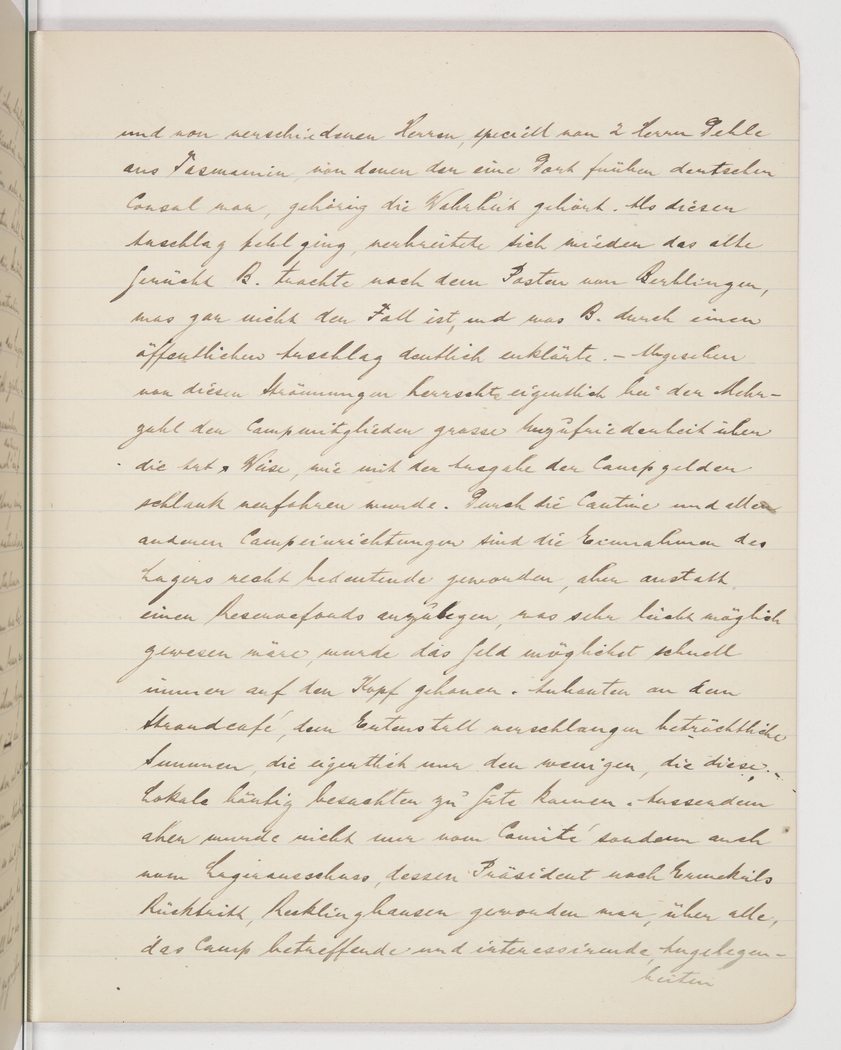 und von verschiedenen Herren, speciell von 2 Herrn Pehle
aus Tasmanien, von denen der eine Dort früher deutscher
Consul war, gehörig die Wahrheit gehört. Als dieser
Anschlag fehl ging, verbreitete sich wieder das alte
Gerücht B. trachte nach dem Posten von Berblinger,
was gar nicht der Fall ist, und was B. durch einen
öffentlichen Anschlag deutlich erklärte. – Abgesehen
von diesen Strömungen herrschte eigentlich bei der Mehr-
zahl der Campmitglieder grosse Unzufriedenheit über
die Art & Weise, wie mit der Ausgabe der Campgelder
schlank verfahren wurde. Durch die Cantine und allen
anderen Campeinrichtungen sind die Einnahmen des
Lagers recht bedeutende geworden, aber anstatt
einen Reservefonds anzulegen, was sehr leicht möglich
gewesen wäre, wurde das Geld möglichst schnell
immer auf den Kopf gehauen. Anbauten an dem
Strandcafé, dem Entenstall verschlangen beträchtliche
Summen, die eigentlich nur den wenigen, die diese
Lokale häufig besuchten zu Gute kamen. Ausserdem
aber wurde nicht nur vom Comité sondern auch
vom Lagerausschuss, dessen Präsident nach
Rücktritt, Recklinghausen geworden war, über alle,
das Camp betreffende und interessirende Angelegen-
heiten